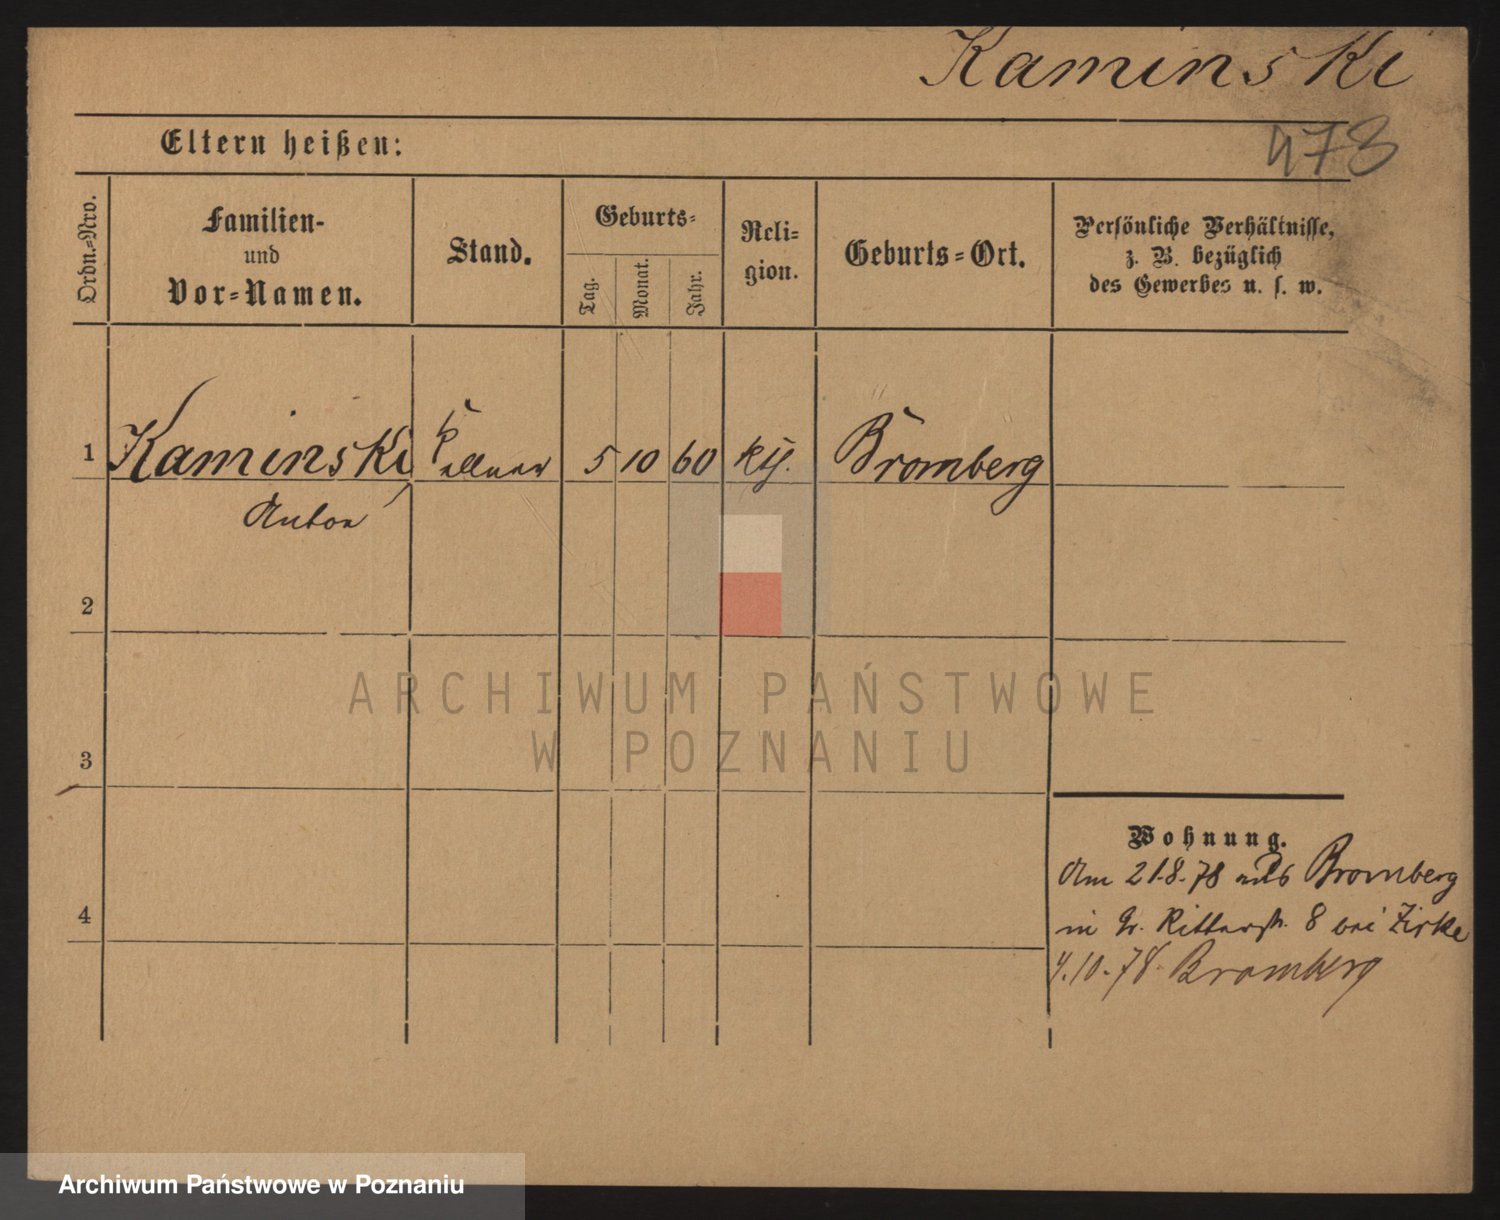 Kaminski
473
Eltern heißen:
Ordn.-Nro.
Familien-
und
Vor-Namen.
Stand.
Geburts-
Tag.
Monat.
Jahr.
Reli-
gion.
Geburts-Ort.
Persönliche Verhältnisse,
z. B. bezüglich
des Gewerbes u. s. w.
1 Kaminski Kellner 5 10 60 kth. Bromberg
Anton
2
3
4
Wohnung.
Am 21.8.78 aus Bromberg
in Gr. Ritterstr. 8 bei Zirke
4.10.78. Bromberg
ARCHIWUM PAŃSTWOWE
W POZNANIU
Archiwum Państwowe w Poznaniu